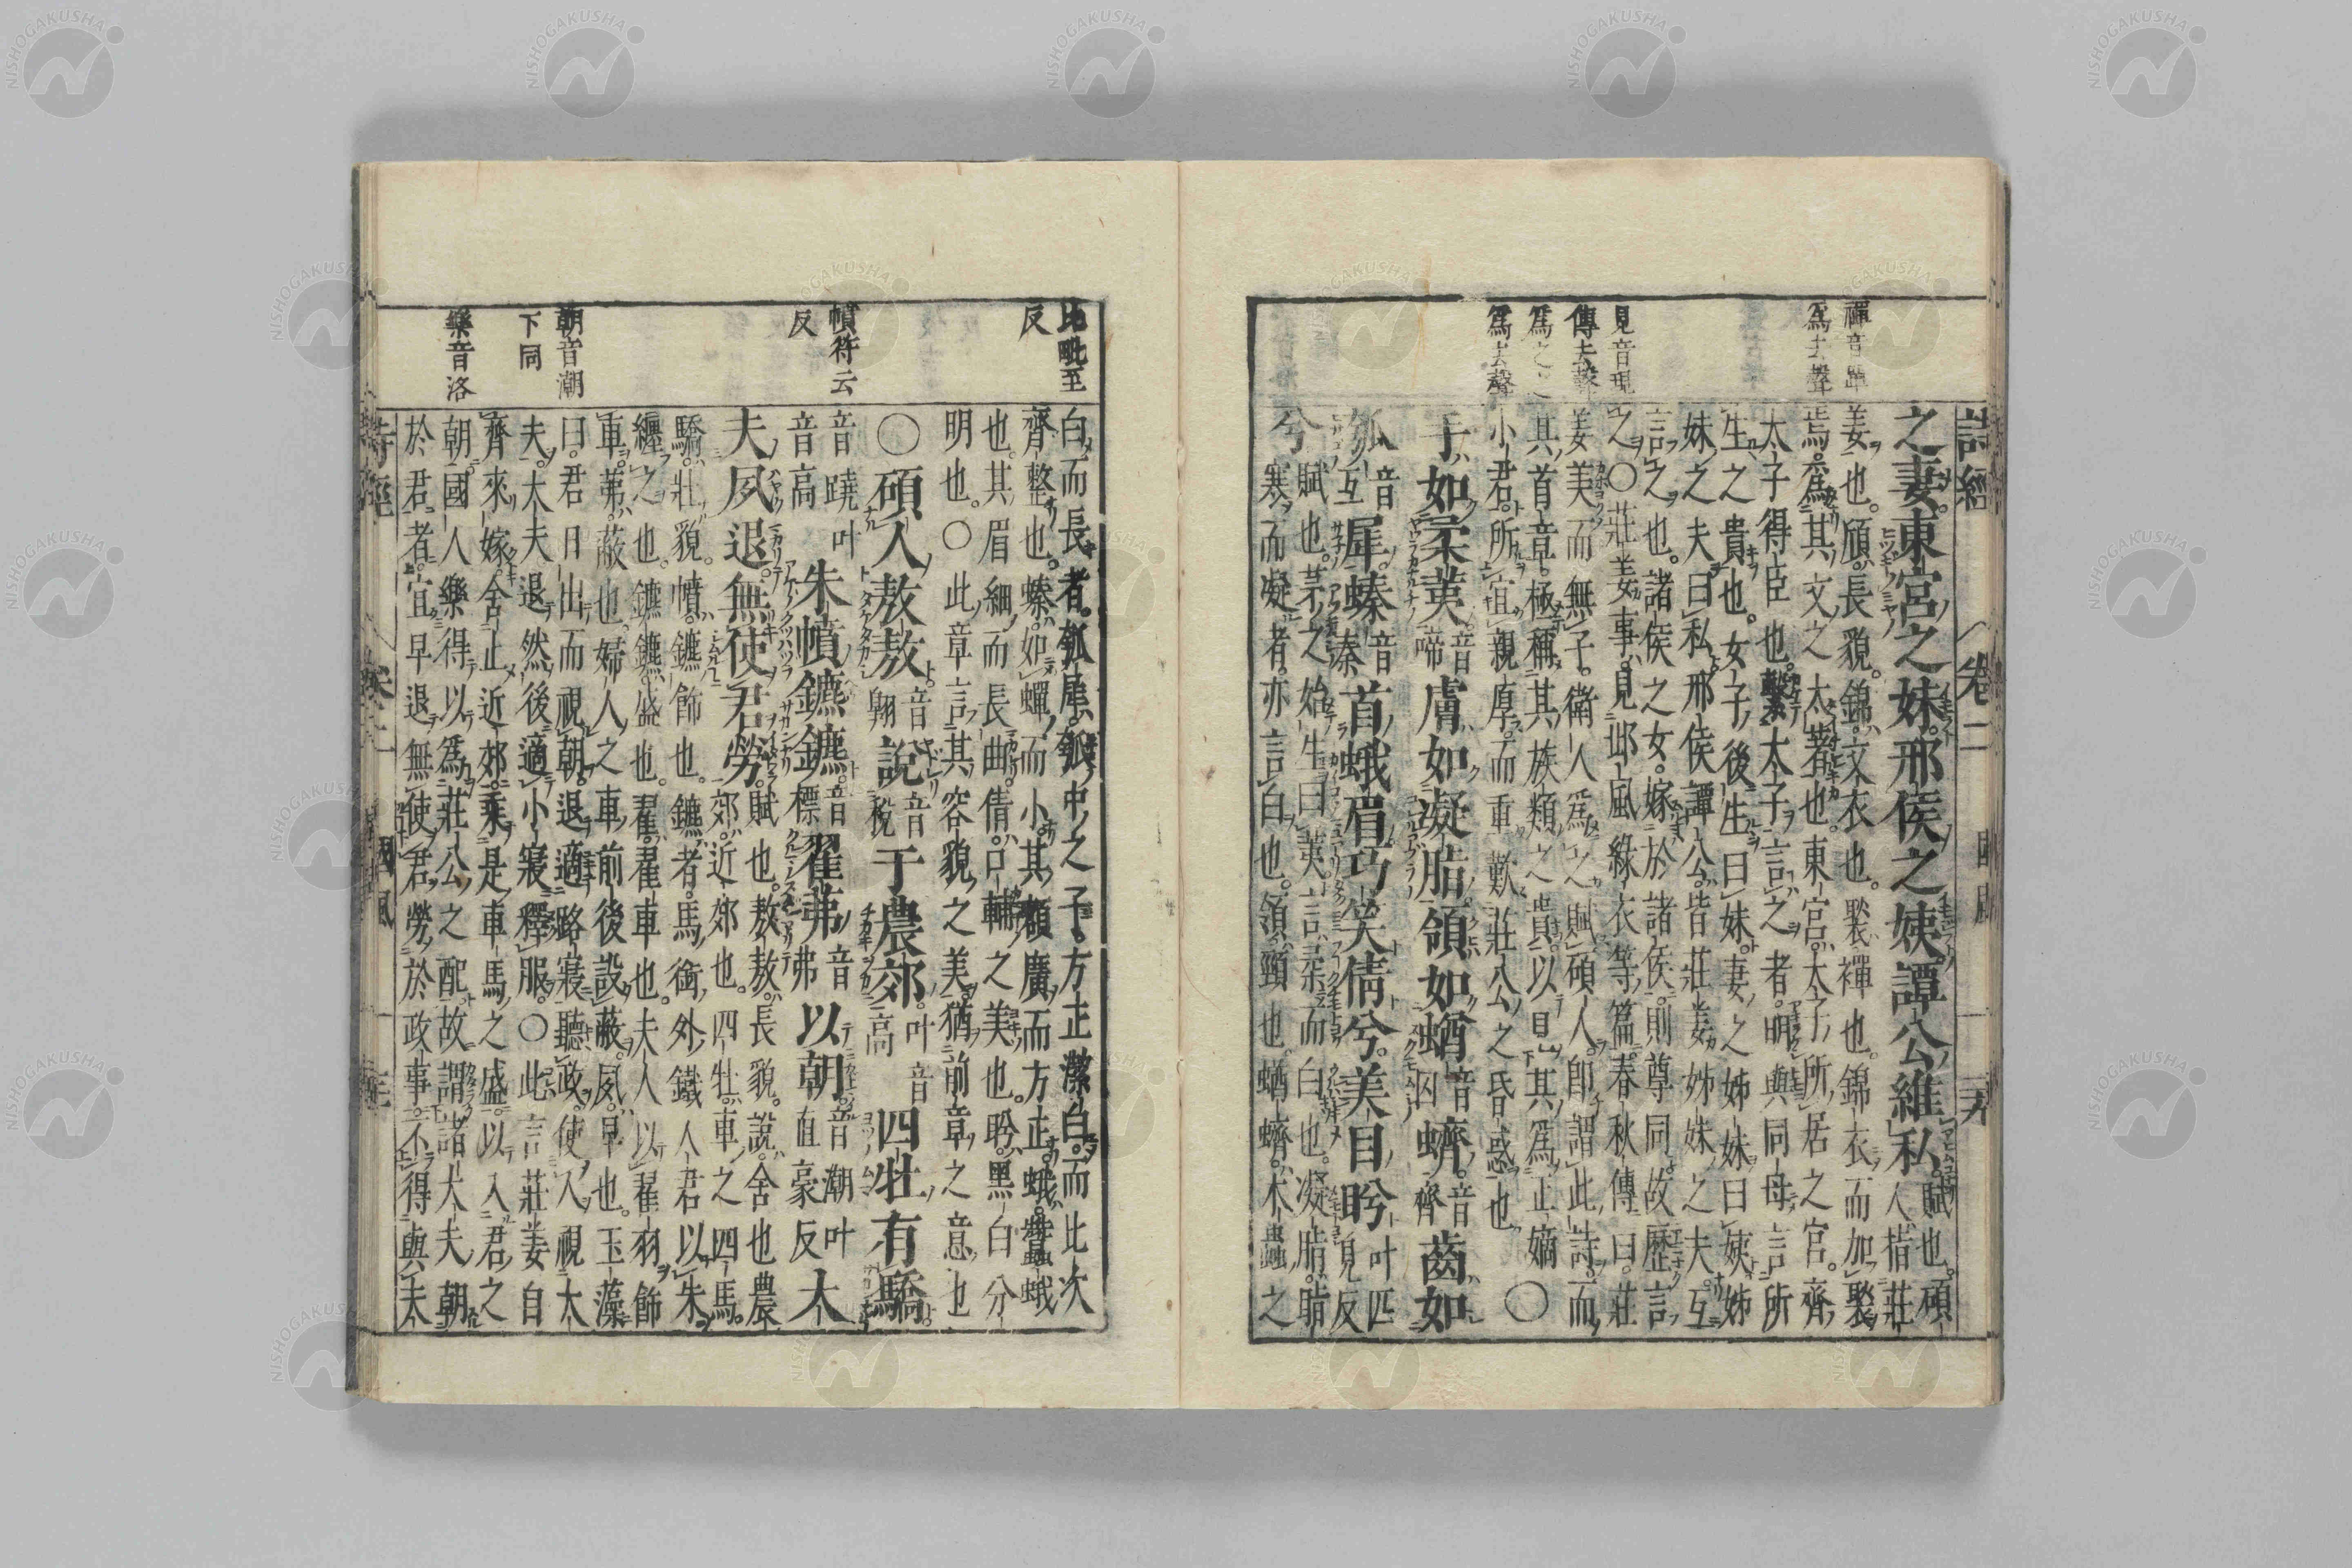 詩經 卷二 國風
禪音單
爲去聲
見音現
傳去聲
爲去聲
之妻。東宮之妹。邢侯之姨。譚公維私。賦也。碩人指莊
姜也。頎長貌。錦文衣也。褧禪也。錦衣而加褧
焉。爲其文之太著也。東宮太子所居之宮。齊
太子得臣也。繫太子言之者。明與同母。言所
生之貴也。女子後生曰妹。妻之姊妹曰姨。姊
妹之夫曰私。邢侯譚公皆莊姜姊妹之夫。互
言之也。諸侯之女。嫁於諸侯。則尊同。故歷言
之。○莊姜事。見邶風綠衣等篇。春秋傳曰。莊
姜美而無子。衛人爲之賦碩人。即謂此詩。而
其首章。極稱其族類之貴。以見其爲正嫡
小君。所宜親厚。而重歎莊公之昏惑也。○
手如柔荑音啼膚如凝脂領如蝤音囚蠐。音齊齒如
瓠音互犀螓音秦首蛾眉巧笑倩兮。美目盼叶匹見反
兮賦也。茅之始生曰荑。言柔而白也。凝脂。脂
寒而凝者。亦言白也。領頸也。蝤蠐。木蟲之
比毗至
反
幩符云
反
朝音潮
下同
樂音洛
白而長者。瓠犀。瓠中之子。方正潔白。而比次
齊整也。螓。如蟬而小。其額廣而方正。蛾。蠶蛾
也。其眉細而長曲。倩。口輔之美也。盼。黑白分
明也。○此章言其容貌之美。猶前章之意也
○碩人敖敖。音翺說音稅于農郊。叶音高四牡有驕
音蹺叶音高朱幩鑣鑣。音標翟茀音弗以朝音潮叶直豪反大
夫夙退。無使君勞。賦也。敖敖。長貌。說。舍也農
郊。近郊也。四牡。車之四馬。
驕。壯貌。幩。鑣飾也。鑣者。馬銜外鐵。人君以朱
纏之也。鑣鑣。盛也。翟。翟車也。夫人以翟羽飾
車。茀。蔽也。婦人之車。前後設蔽。夙。早也。玉藻
曰。君日出而視朝。退適路寢聽政。使人視大
夫。大夫退。然後適小寢釋服。○此言莊姜自
齊來嫁。舍止近郊。乘是車馬之盛。以入君之
朝。國人樂得以爲莊公之配。故謂諸大夫朝
於君者。宜早退。無使君勞於政事。不得與夫
詩經 卷二 國風